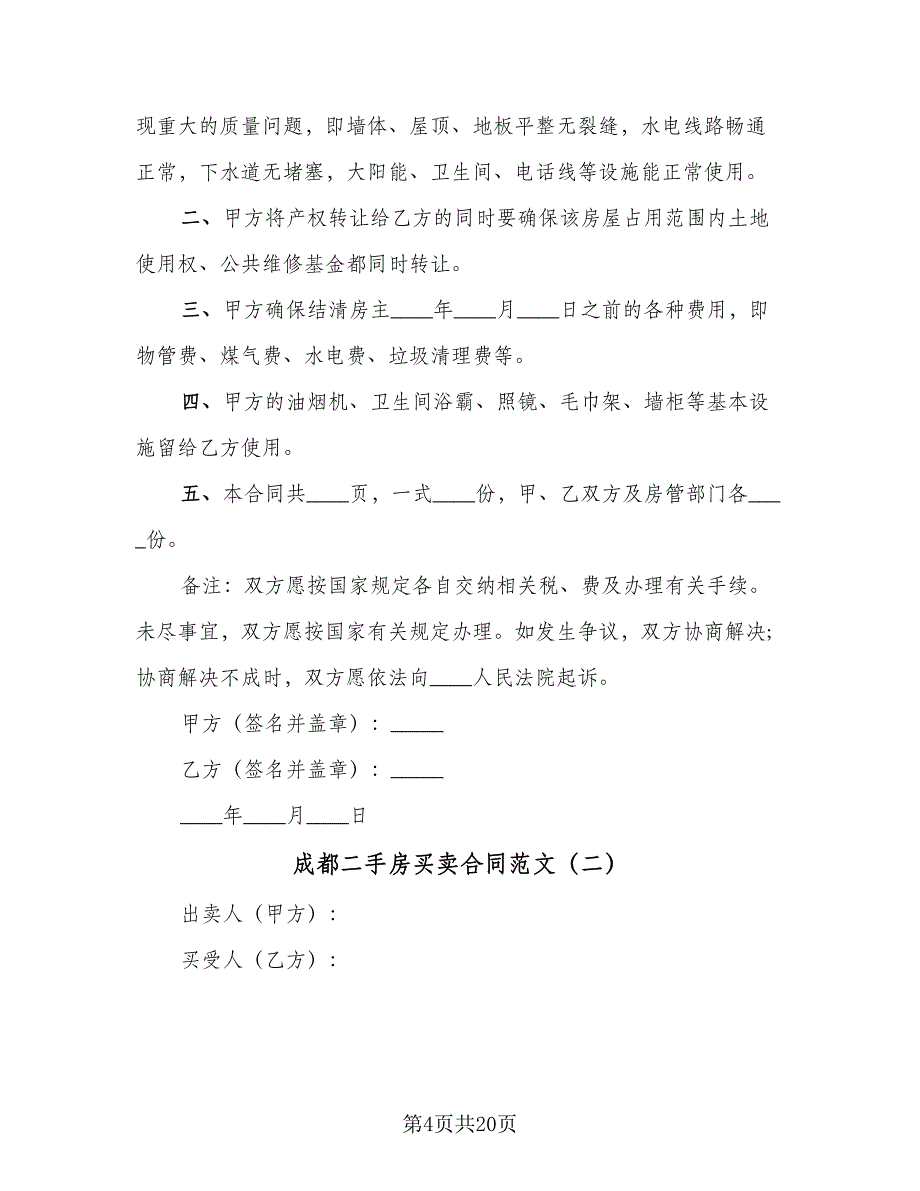 现重大的质量问题，即墙体、屋顶、地板平整无裂缝，水电线路畅通
正常，下水道无堵塞，大阳能、卫生间、电话线等设施能正常使用。
二、甲方将产权转让给乙方的同时要确保该房屋占用范围内土地
使用权、公共维修基金都同时转让。
三、甲方确保结清房主____年____月____日之前的各种费用，即
物管费、煤气费、水电费、垃圾清理费等。
四、甲方的油烟机、卫生间浴霸、照镜、毛巾架、墙柜等基本设
施留给乙方使用。
五、本合同共____页，一式____份，甲、乙双方及房管部门各___
_份。
备注：双方愿按国家规定各自交纳相关税、费及办理有关手续。
未尽事宜，双方愿按国家有关规定办理。如发生争议，双方协商解决;
协商解决不成时，双方愿依法向____人民法院起诉。
甲方（签名并盖章）：_____
乙方（签名并盖章）：_____
____年____月____日
成都二手房买卖合同范文（二）
出卖人（甲方）：
买受人（乙方）：
第4页共20页